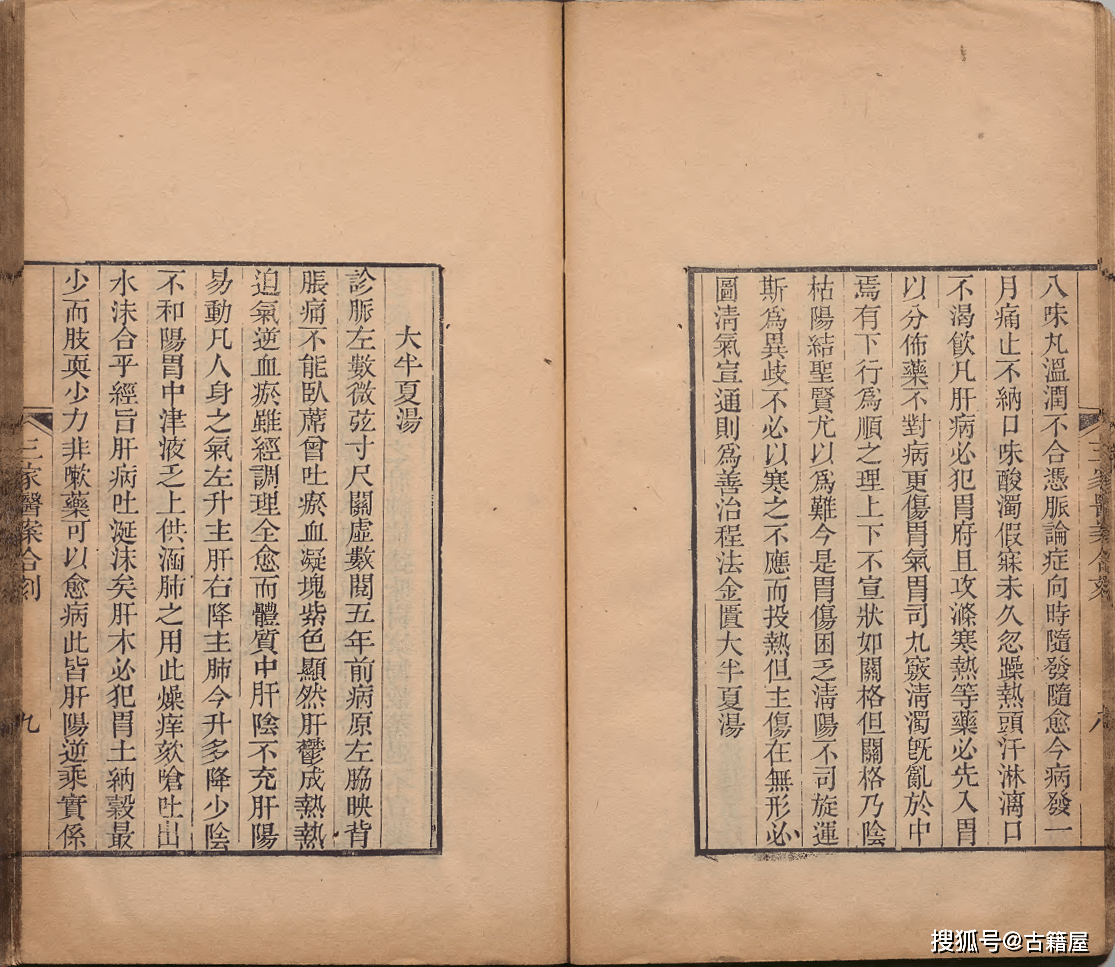 八味丸溫潤不合憑脈論症向時隨發隨愈今病發一
月痛止不納口味酸濁假寐未久忽躁熱頭汗淋漓口
不渴飲凡肝病必犯胃府且攻滌寒熱等藥必先入胃
以分佈藥不對病更傷胃氣胃司九竅淸濁旣亂於中
焉有下行爲順之理上下不宣狀如關格但關格乃陰
枯陽結聖賢尤以爲難今是胃傷困乏淸陽不司旋運
斯爲異歧不必以寒之不應而投熱但主傷在無形必
圖淸氣宣通則爲善治程法金匱大半夏湯
三家醫案合刻
八
大半夏湯
診脈左數微弦寸尺關虛數閱五年前病原左脇映背
脹痛不能臥蓆曾吐瘀血凝塊紫色顯然肝鬱成熱熱
迫氣逆血瘀雖經調理全愈而體質中肝陰不充肝陽
易動凡人身之氣左升主肝右降主肺今升多降少陰
不和陽胃中津液乏上供涵肺之用此燥痒欬嗆吐出
水沫合乎經旨肝病吐涎沫矣肝木必犯胃土納穀最
少而肢耎少力非嗽藥可以愈病此皆肝陽逆乘實係
三家醫案合刻
九
搜狐号@古籍屋